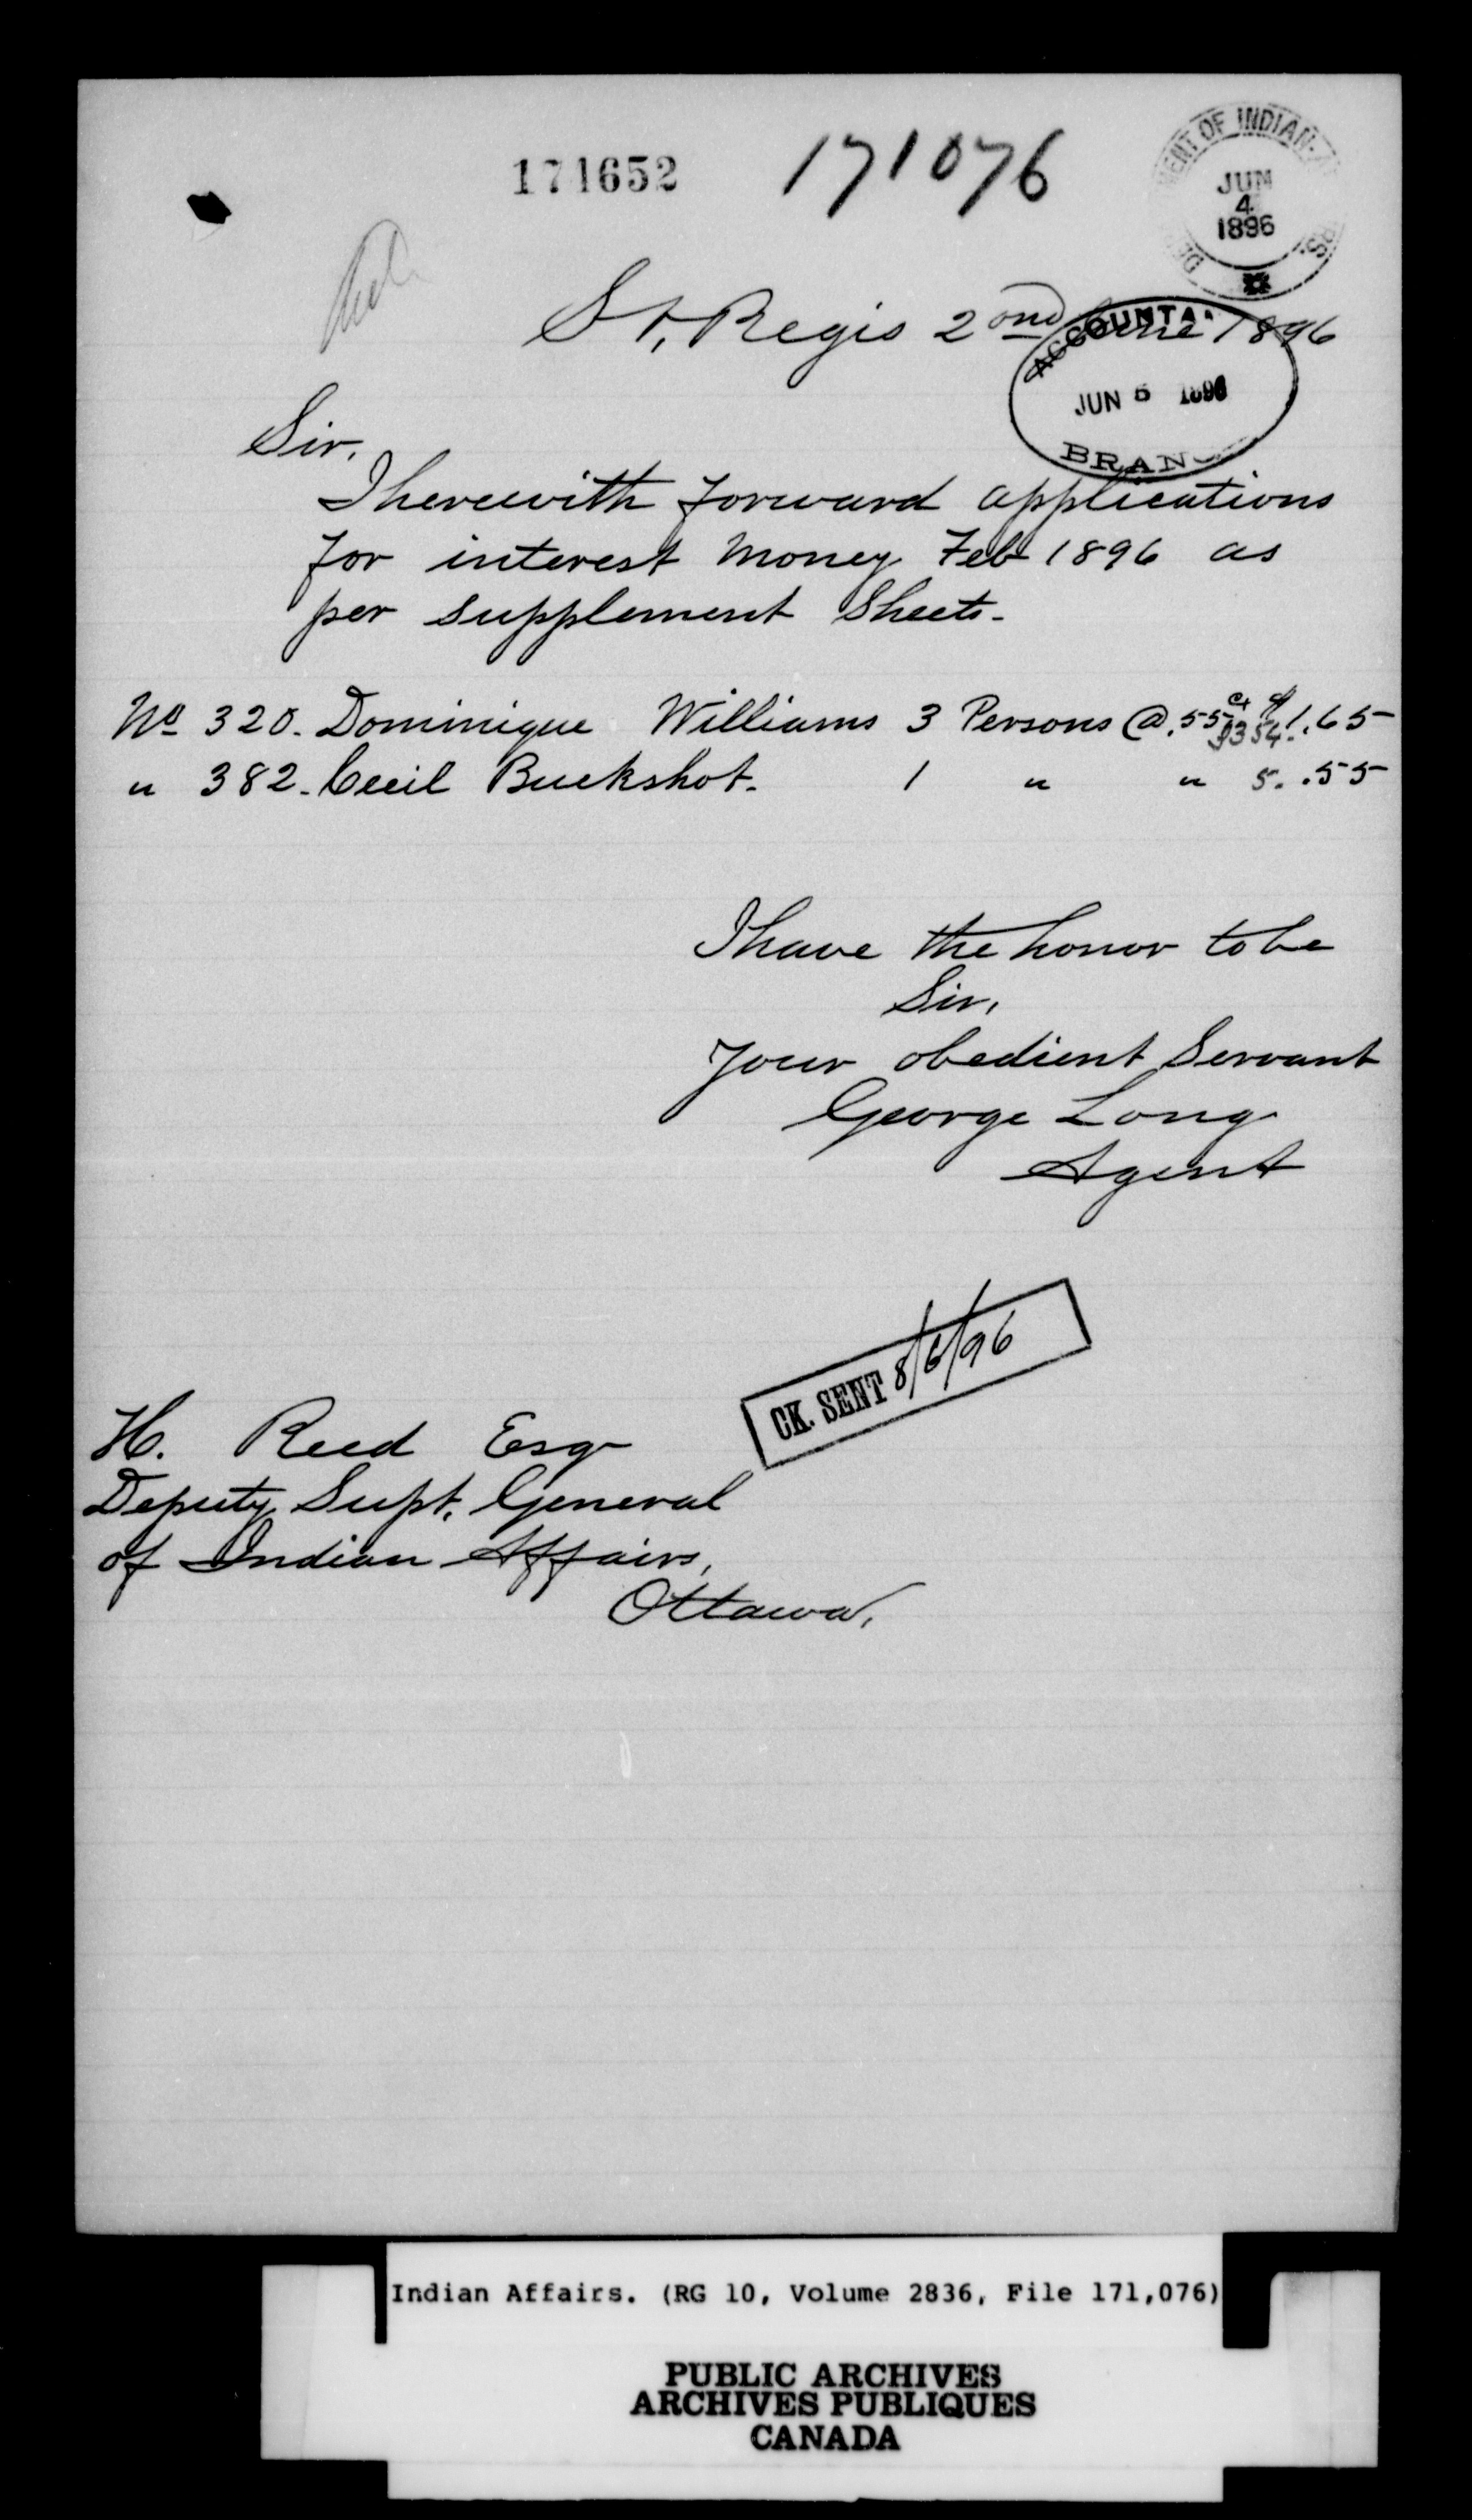 171652 171076
DEP MENT OF INDIAN A RS.
JUN
4
1896
St, Regis 2ond June 1896
ACCOUNTA
JUN 6 1896
BRANC
Sir,
I herewith forward applications
for interest Money Feb 1896 as
per supplement Sheets.
No 320. Dominique Williams 3 Persons @ .55 cts $1.65
9354.
" 382. Cecil Buckshot. 1 " " 5. .55
I have the honor to be
Sir,
Your obedient Servant
George Long
Agent
CK. SENT 8/6/96
H. Reed Esqr
Deputy Supt. General
of Indian Affairs,
Ottawa,
Indian Affairs. (RG 10, Volume 2836, File 171,076)
PUBLIC ARCHIVES
ARCHIVES PUBLIQUES
CANADA